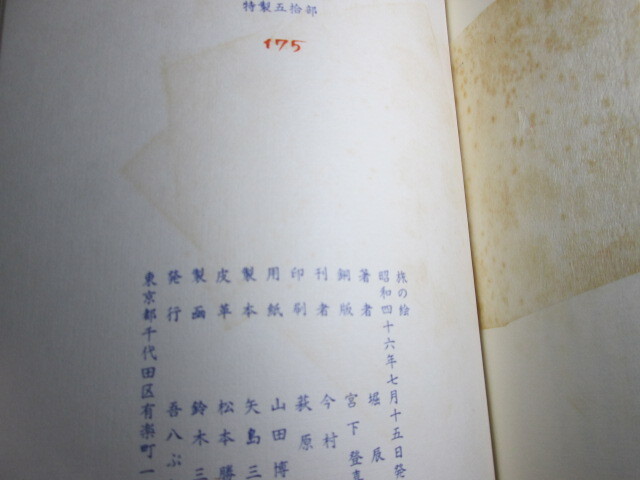 特製五拾部
175
旅の絵
昭和四十六年七月十五日発
著者 堀 辰
銅版 宮下登喜
刊者 今村
印刷 萩原
用紙 山田博
製本 矢島三
皮革 松本勝
製函 鈴木三
発行 吾八ぷ
東京都千代田区有楽町一